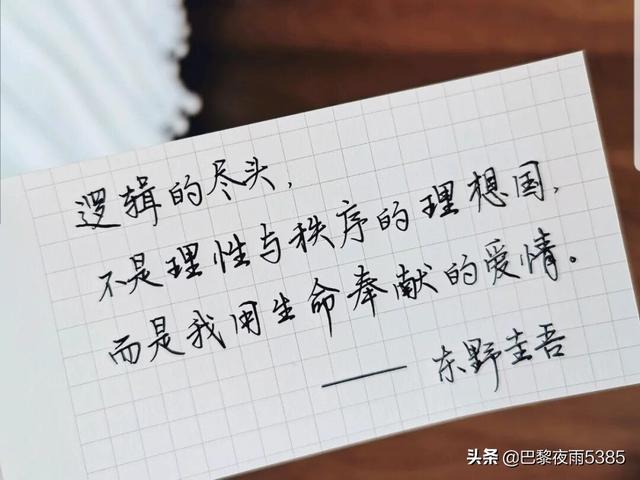 逻辑的尽头，
不是理性与秩序的理想国，
而是我用生命奉献的爱情。
—— 东野圭吾
头条 @巴黎夜雨5385